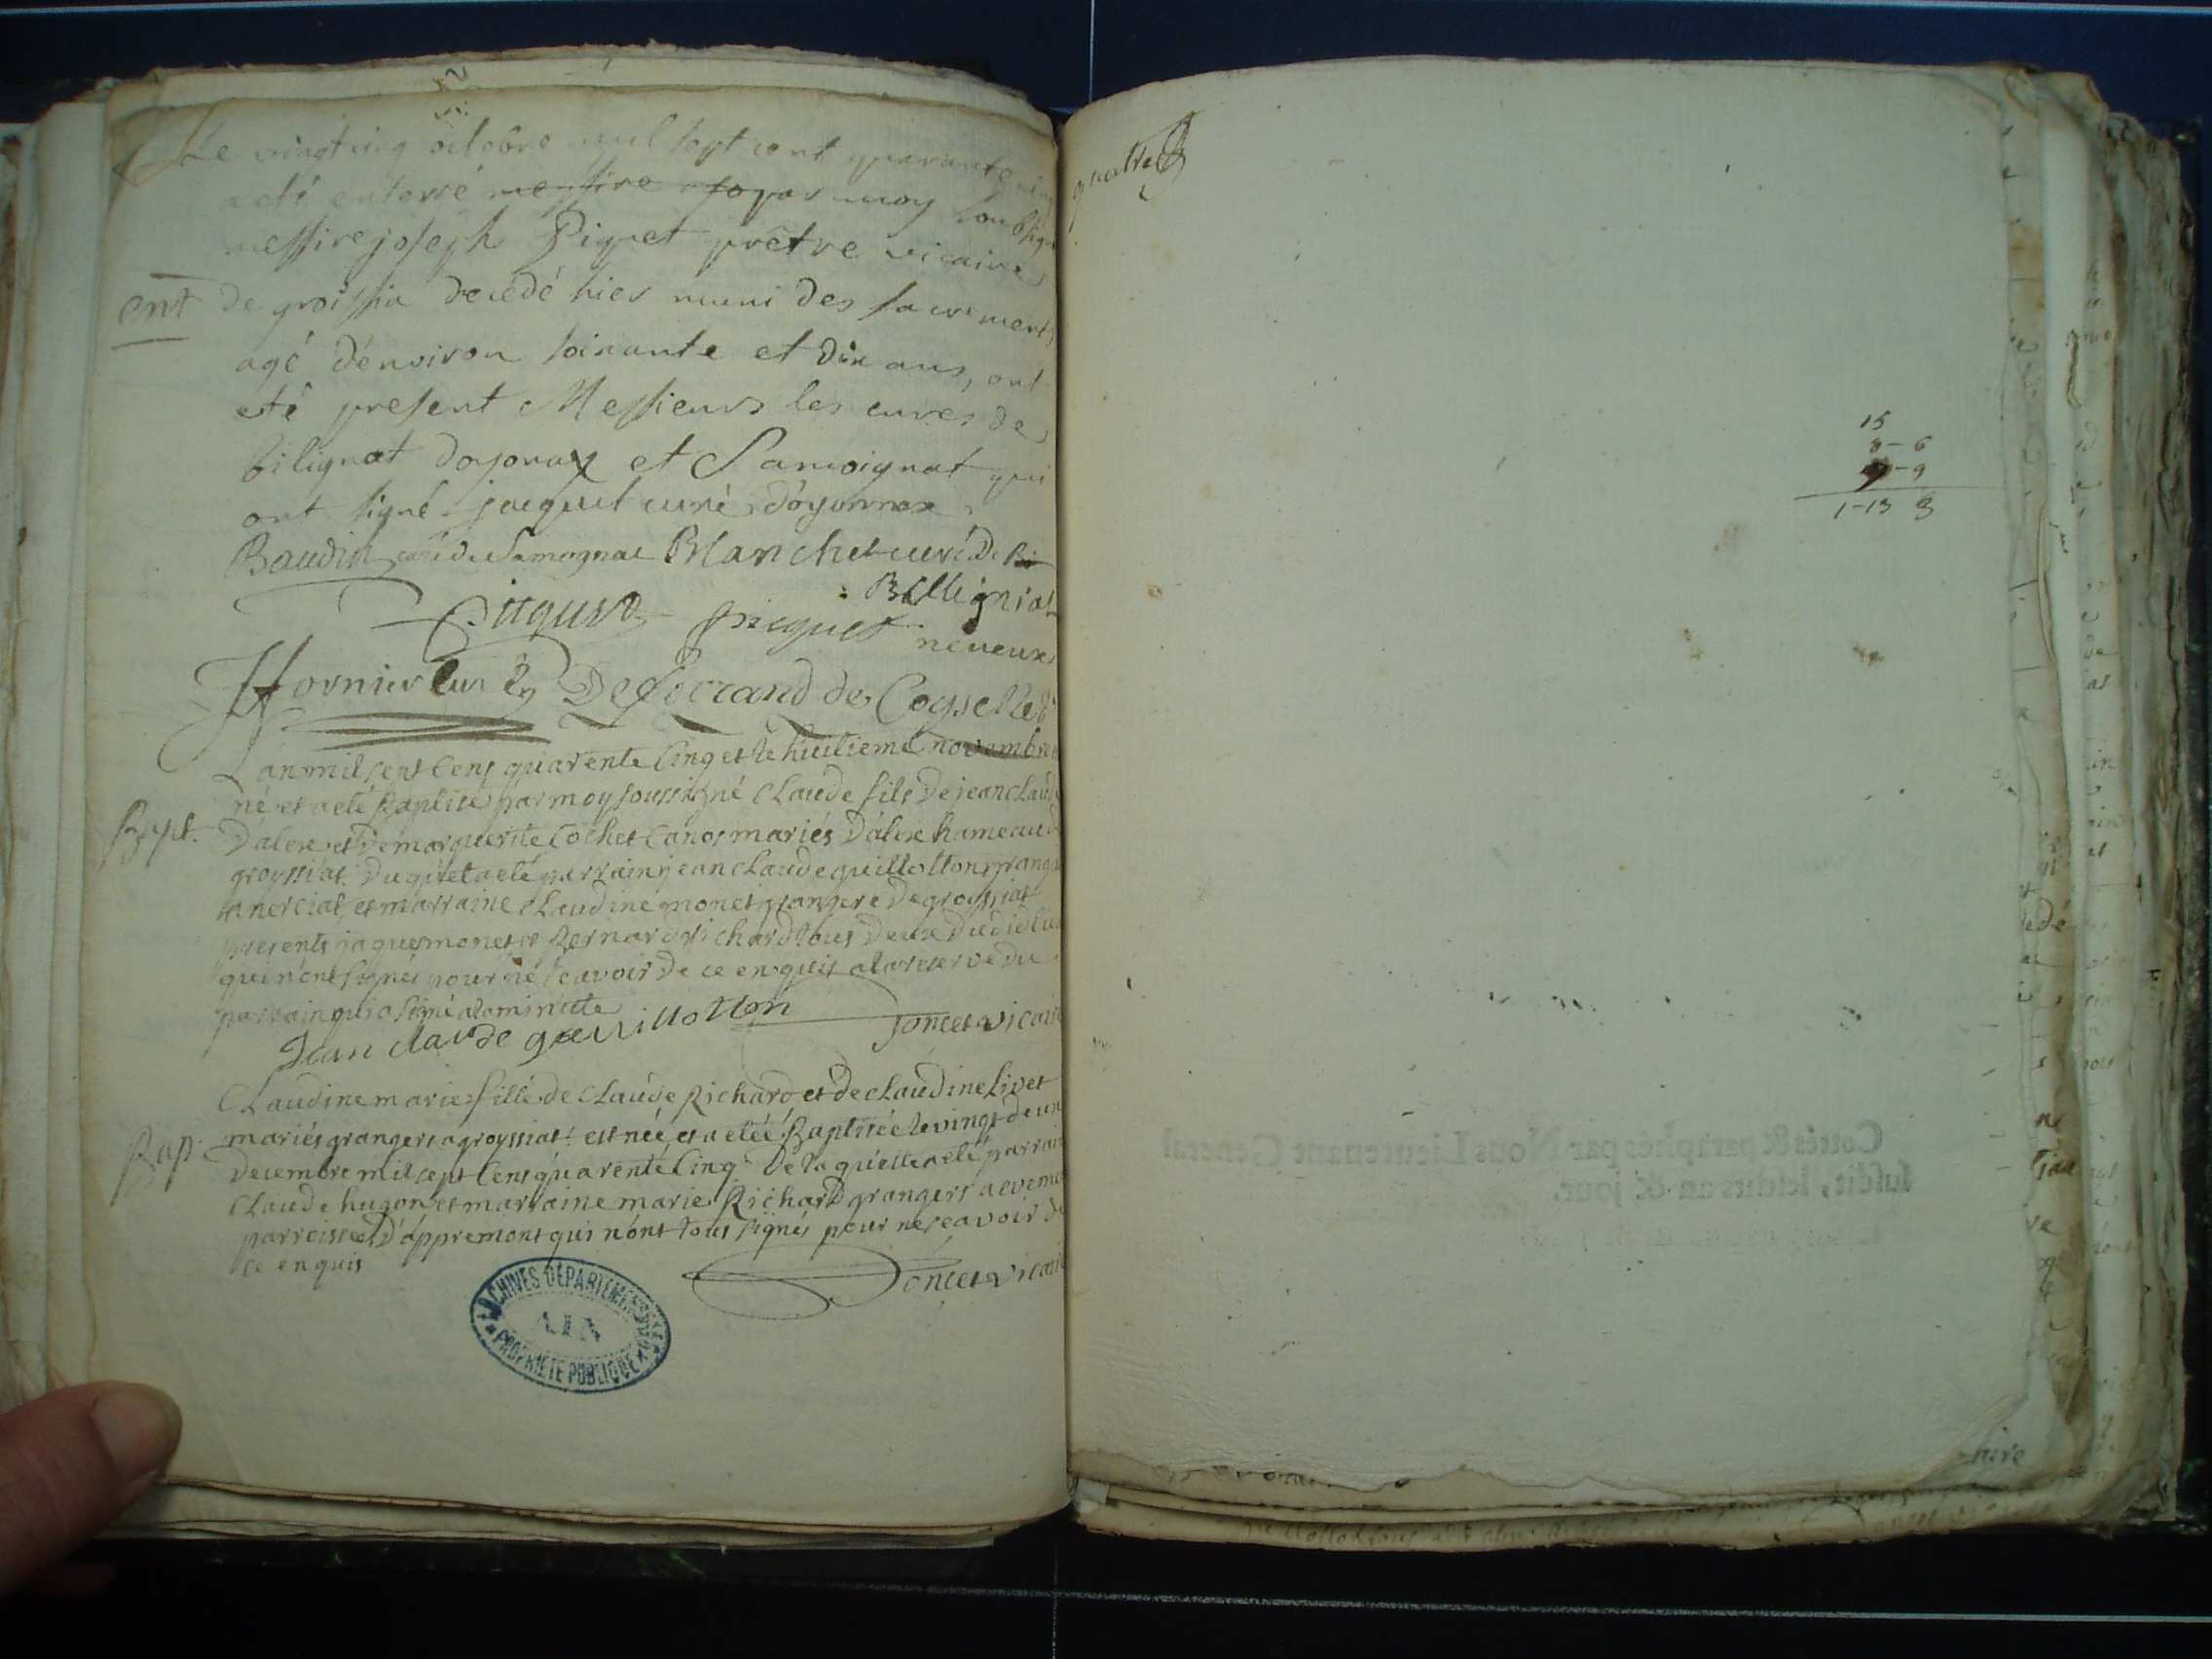 Le vingt cinq octobre mil sept cent quarante cinq
a eté enterré messire Jo par moy soubsigné
messire joseph Piquet prêtre vicaire
ent de groissia decedé hier muni des sacrements
agé d'environ soixante et dix ans, ont
eté present Messieurs les curés de
bilignat doyonax et Samoignat qui
ont signé jacquet curé d'oyonnax
Baudin curé de Samognat Blanchet curé De Bi
Bellignia
Piquet Picquet neveux
Hornier curé Delocrand de Coyselle
L'an mil sept Cens quarente Cinq et le huitieme novembre
né et a eté Baptisé par moy soussigné Claude fils De jean claude
Bapt. Dalex et De marguerite Cochet Canos mariés D'alex hameau
groyssiat. Duquel a eté parrain jean claude guillotton
a nerciat, et marraine Claudine monet grangere De groyssiat
presents jaques monet et Bernard richard tous Deux
qui n'ont signés pour ne sçavoir De ce enquis a la reserve Du
parrain qui a signé a la minute
Jean claude guillotton Joncet vicaire
Claudine marie fille de Claude Richard et de claudine Livet
Bap. mariés grangers a groyssiat est néé, et a etéé Baptiséé le vingt deux
Decembre mil sept Cens quarente Cinq De laquelle a eté parrain
Claude hugon et marraine marie Richard grangers a
parroisse D'appremont qui n'ont tous signés pour ne sçavoir de
ce enquis
Joncet vicaire
ARCHIVES DÉPARTEMENTALES
AIN
PROPRIÉTÉ PUBLIQUE
quatre
15
8-6
9-9
1-13 3
Cottés & paraphés par Nous Lieutenant General
susdit, lesdits an & jour.